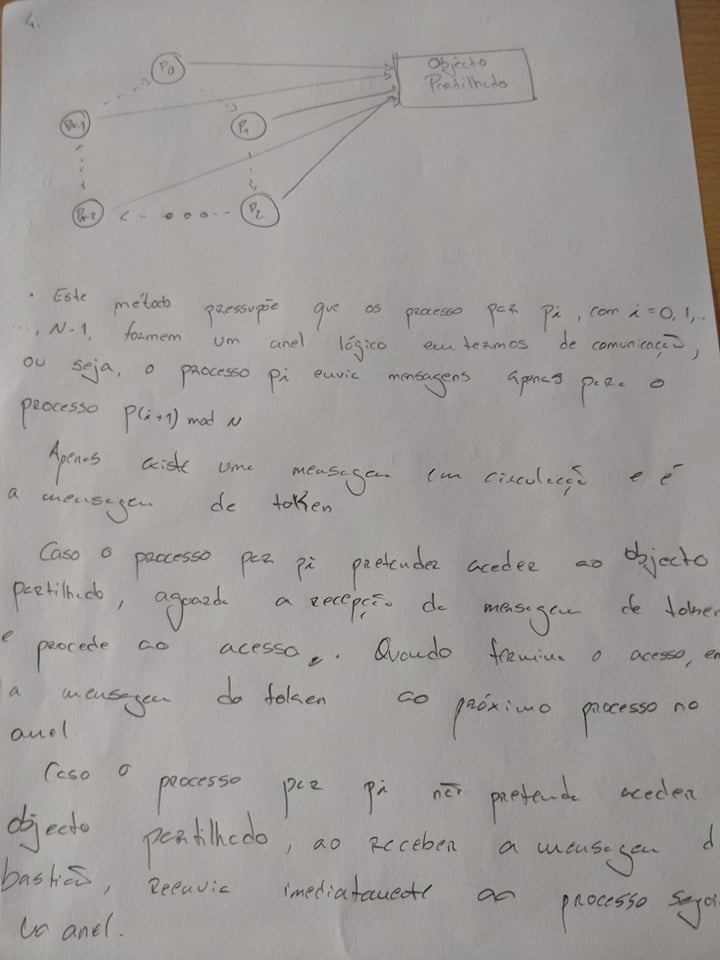 4.
P0
Objecto
Pratilhado
PN-1
P1
PN-2
P2
· Este método pressupõe que os processo par pi, com i = 0, 1, ..
..., N-1, formem um anel lógico em termos de comunicação,
ou seja, o processo pi envia mensagens apenas para o
processo p(i+1) mod N
Apenas existe uma mensagem em circulação e é
a mensagem de token
Caso o processo par pi pretender aceder ao objecto
partilhado, aguarda a recepção da mensagem de token
e procede ao acesso. Quando termina o acesso, en
a mensagem do token ao próximo processo no
anel.
Caso o processo par pi não pretenda aceder
objecto partilhado, ao receber a mensagem d
bastião, reenvia imediatamente ao processo segui
no anel.